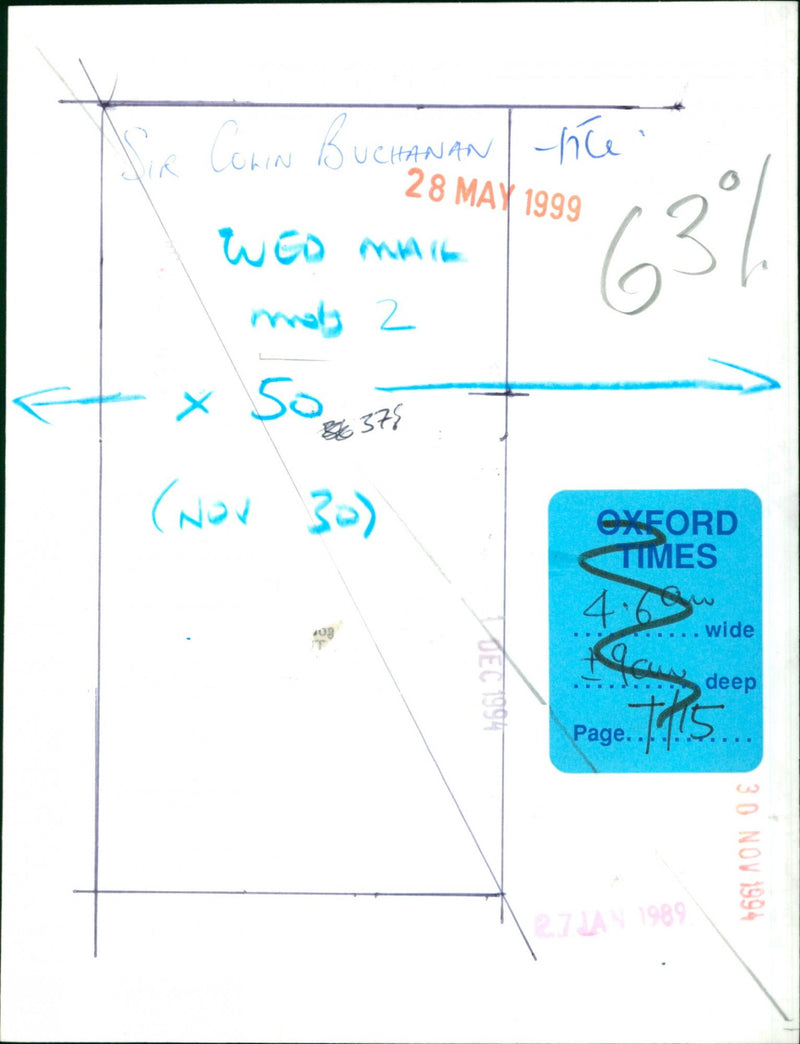 SIR COLIN BUCHANAN - file
28 MAY 1999
63%
WED MAIL
mofs 2
x 50
37%
(NOV 30)
OXFORD
TIMES
4.6cm wide
±9cm deep
Page TT15
1 DEC 1994
30 NOV 1994
27 JAN 1989